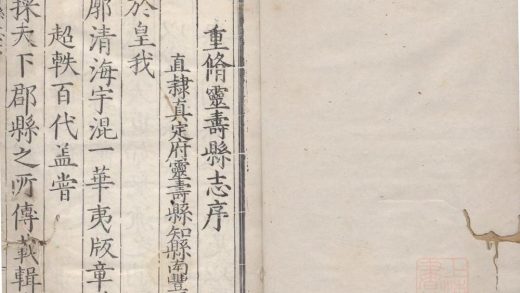 重脩靈壽縣志序
直隸真定府靈壽縣知縣南豐
於皇我
廓清海宇混一華夷版章
超軼百代盖嘗
採天下郡縣之所傳載輯